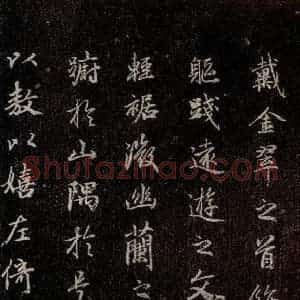 戴金翠之首飾
軀踐遠遊之文
輕裾微幽蘭之
躕於山隅於是
以敖以嬉左倚
Shufaziliao.com